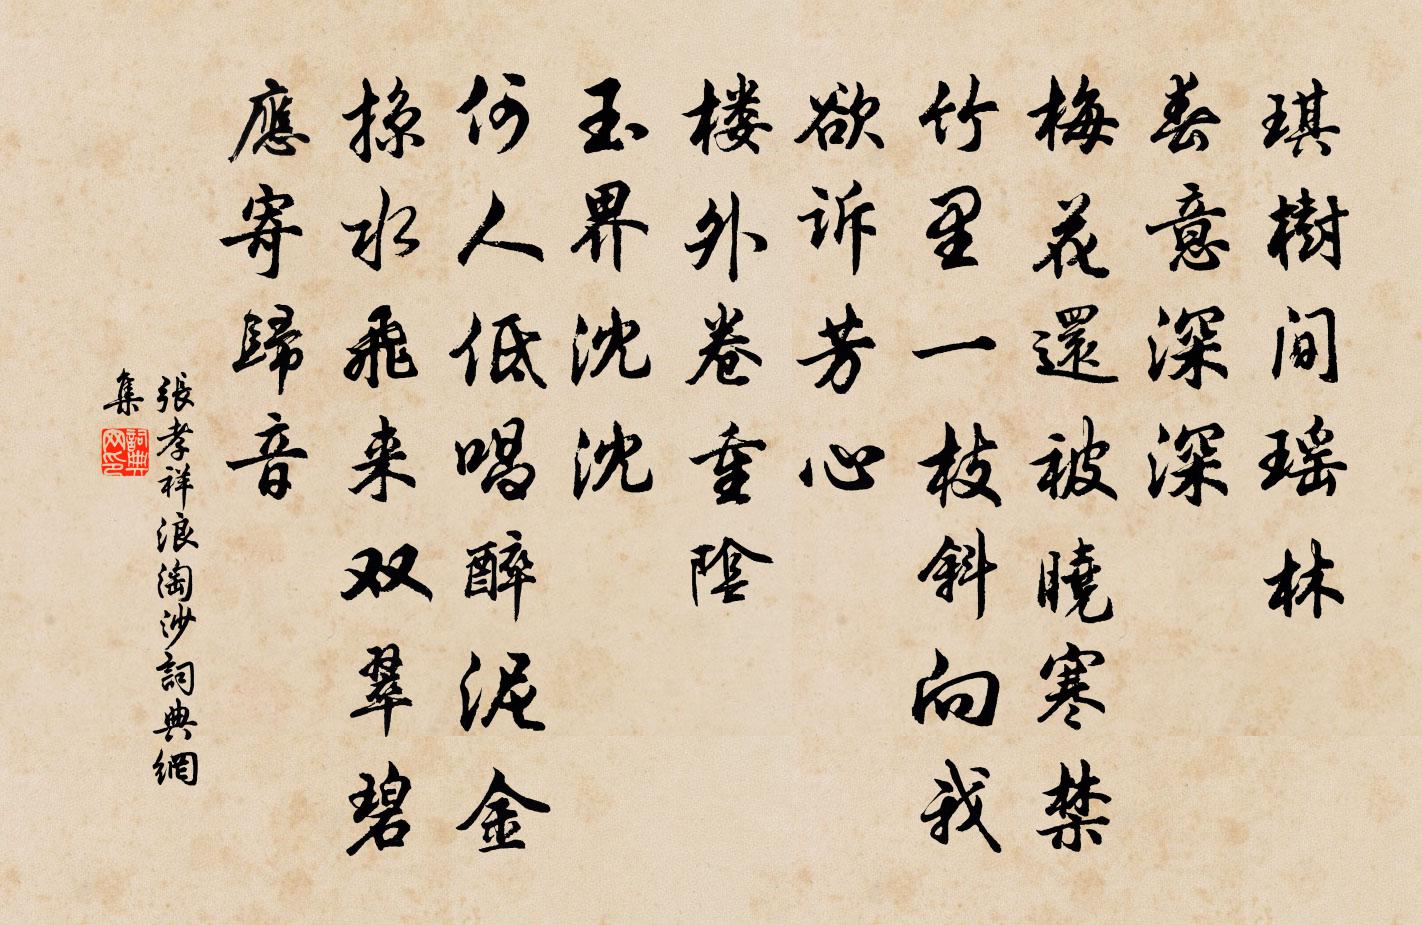 琪樹間瑶林
春意深深
梅花還被曉寒禁
竹里一枝斜向我
欲訴芳心
楼外卷重陰
玉界沈沈
何人低唱醉泥金
掠水飛来双翠碧
應寄歸音
張孝祥浪淘沙詞典網
集
詞典
网印